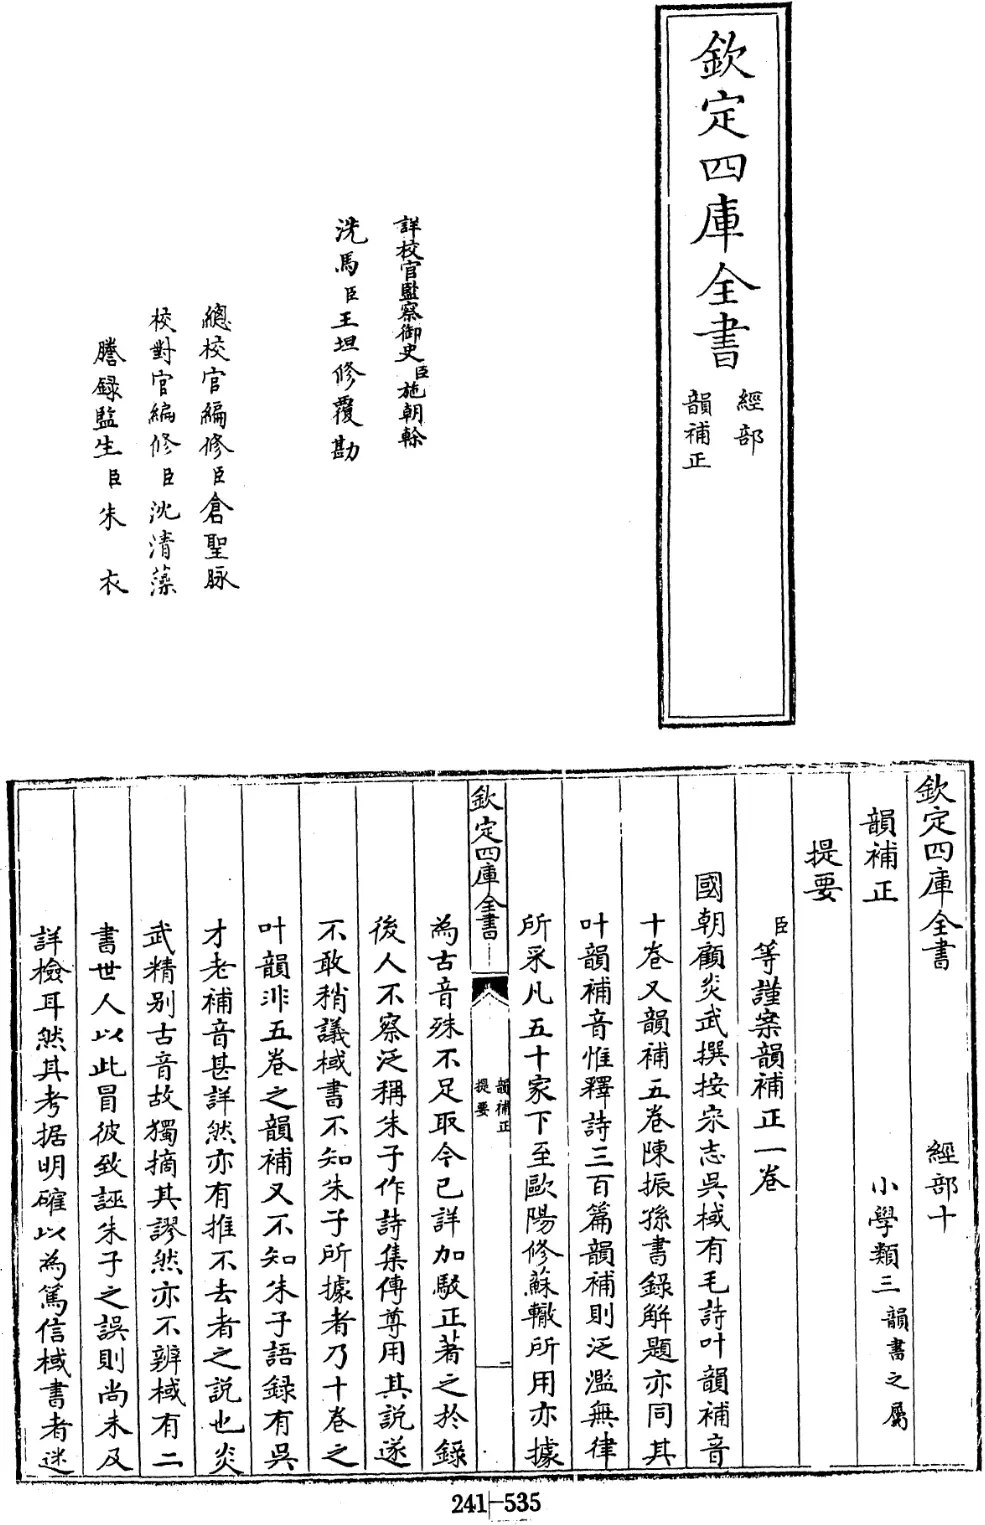 欽定四庫全書
經部
韻補正
詳校官監察御史臣施朝榦
洗馬臣王坦修覆勘
總校官編修臣倉聖脈
校對官編修臣沈清藻
謄録監生臣朱衣
欽定四庫全書 經部十
韻補正 小學類三韻書之屬
提要
臣等謹案韻補正一卷
國朝顧炎武撰按宋志吳棫有毛詩叶韻補音
十卷又韻補五卷陳振孫書錄解題亦同其
叶韻補音惟釋詩三百篇韻補則泛濫無律
所采凡五十家下至歐陽修蘇轍所用亦據
欽定四庫全書
韻補正
提要
二
為古音殊不足取今已詳加駁正著之於錄
後人不察泛稱朱子作詩集傳尊用其說遂
不敢稍議棫書不知朱子所據者乃十卷之
叶韻非五卷之韻補又不知朱子語錄有吳
才老補音甚詳然亦有推不去者之說也炎
武精别古音故獨摘其謬然亦不辨棫有二
書世人以此冒彼致誣朱子之誤則尚未及
詳檢耳然其考据明確以為篤信棫書者迷
241-535